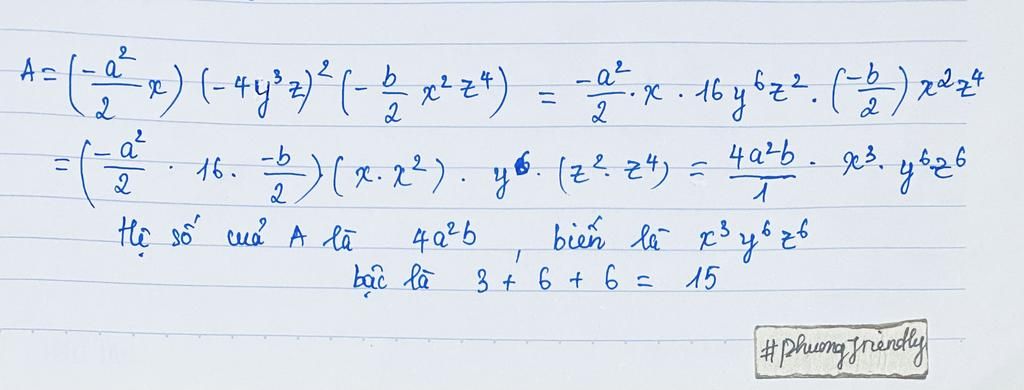 A = (-a²/2 x) (-4y³z)² (-b/2 x² z⁴) = -a²/2 . x . 16 y⁶z² . (-b/2) x²z⁴
= (-a²/2 . 16 . -b/2) (x . x²) . y⁶ . (z² . z⁴) = 4a²b/1 . x³ . y⁶ z⁶
Hệ số của A là 4a²b , biến là x³ y⁶ z⁶
bậc là 3 + 6 + 6 = 15
#phuongfriendly